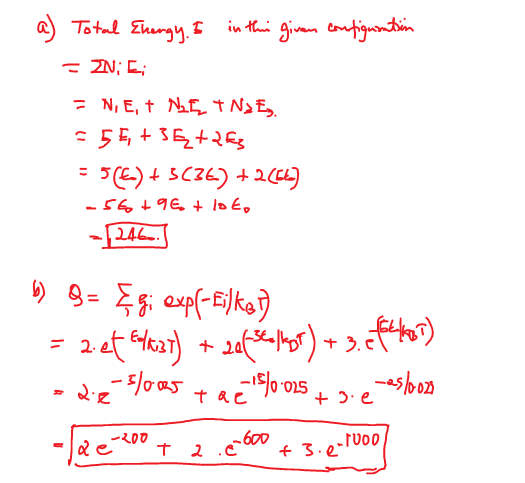 a) Total Energy. E in this given configuration
= ΣNiEi
= N1E1 + N2E2 + N3E3.
= 5E1 + 3E2 + 2E3
= 5(E0) + 3(3E0) + 2(5E0)
= 5E0 + 9E0 + 10E0
= 24E0.
b) Q = Σi gi exp(-Ei/kBT)
= 2.e(-E0/kBT) + 2e(-3E0/kBT) + 3.e(-5E0/kBT)
= 2.e^-5/0.025 + 2e^-15/0.025 + 3.e^-25/0.025
= 2e^-200 + 2.e^-600 + 3.e^-1000